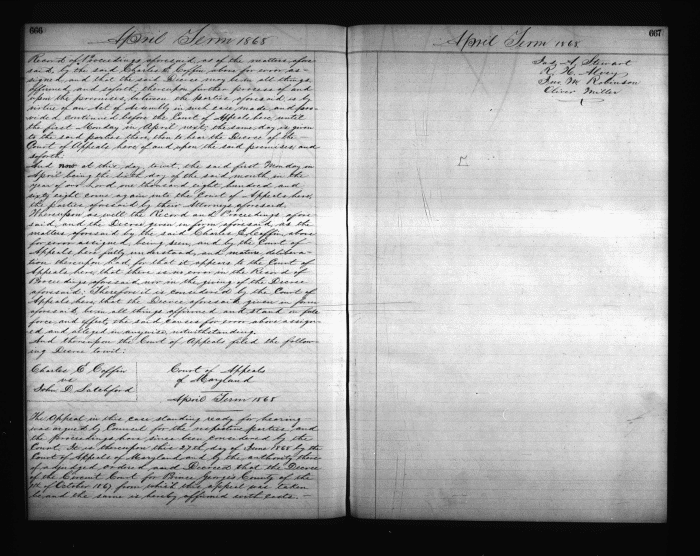 666
April Term 1868
Record & Proceedings aforesaid, as of the matters afore
said, by the said Charles E. Coffin, above for error as-
signed, and that the said Decree may be in all things
affirmed, and soforth, thereupon further process of and
upon the premises, between the parties aforesaid, is by
virtue of an Act of Assembly in such case made, and pro-
vided continued before the Court of Appeals here, until
the first Monday in April next; the same day is given
to the said parties there, then to hear the Decree of the
Court of Appeals here, of and upon the said premises, and
soforth.
And now at this day, towit, the said first Monday in
April being the sixth day of the said month in the
year of our Lord one thousand eight hundred and
sixty eight come again into the Court of Appeals here,
the parties aforesaid by their Attorneys aforesaid,
Whereupon as well the Record and Proceedings, afore
said, and the Decree given in form aforesaid, as the
matters aforesaid by the said Charles E. Coffin, above
for error assigned, being seen, and by the Court of
Appeals here fully understood, and mature delibera-
tion thereupon had, for that it appears to the Court of
Appeals here, that there is no error in the Record &
Proceedings aforesaid, nor in the giving of the Decree
aforesaid. Therefore it is considered by the Court of
Appeals here, that the Decree aforesaid, given in form
aforesaid, be in all things affirmed and stand in full
force and effect, the said causes for error above assign-
ed and alleged in anywise notwithstanding.
And thereupon the Court of Appeals filed the follow-
ing Decree towit:
Charles E. Coffin
vs
John D. Latchford
Court of Appeals
of Maryland
April Term 1868
The Appeal in this case standing ready for hearing
was argued by Council for the respective parties, and
the proceedings have since been considered by the
Court. It is thereupon this 27th day of June 1868 by the
Court of Appeals of Maryland and by the authority there-
of adjudged ordered and Decreed that the Decree
of the Circuit Court for Prince George's County of the
of October 1867 from which this appeal was taken
be, and the same is hereby affirmed with costs.
667
April Term 1868
Stewart
R. H. Alvey
M. Robinson
Oliver Miller